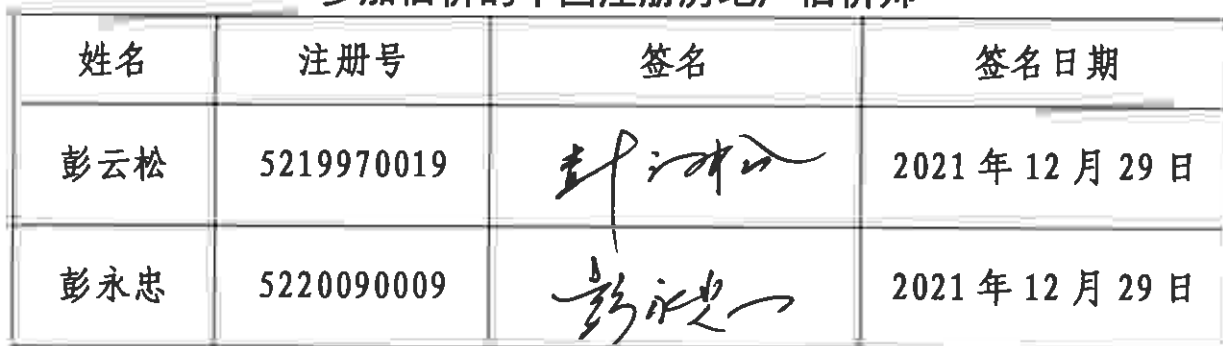 参加估价的中国注册房地产估价师
姓名 注册号 签名 签名日期
彭云松 5219970019 彭云松 2021年12月29日
彭永忠 5220090009 彭永忠 2021年12月29日